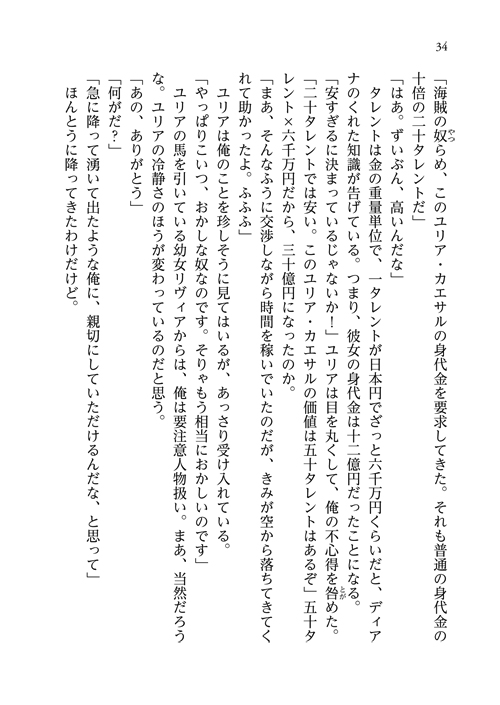 34
「海賊の奴らめ、このユリア・カエサルの身代金を要求してきた。それも普通の身代金の
十倍の二十タレントだ」
「はあ。ずいぶん、高いんだな」
タレントは金の重量単位で、一タレントが日本円でざっと六千万円くらいだと、ディア
ナのくれた知識が告げている。つまり、彼女の身代金は十二億円だったことになる。
「安すぎるに決まっているじゃないか！」ユリアは目を丸くして、俺の不心得を咎めた。
「二十タレントでは安い。このユリア・カエサルの価値は五十タレントはあるぞ」五十タ
レント×六千万円だから、三十億円になったのか。
「まあ、そんなふうに交渉しながら時間を稼いでいたのだが、きみが空から落ちてきてく
れて助かったよ。ふふふ」
ユリアは俺のことを珍しそうに見てはいるが、あっさり受け入れている。
「やっぱりこいつ、おかしな奴なのです。そりゃもう相当におかしいのです」
ユリアの馬を引いている幼女リヴィアからは、俺は要注意人物扱い。まあ、当然だろう
な。ユリアの冷静さのほうが変わっているのだと思う。
「あの、ありがとう」
「何がだ？」
「急に降って湧いて出たような俺に、親切にしていただけるんだな、と思って」
ほんとうに降ってきたわけだけど。